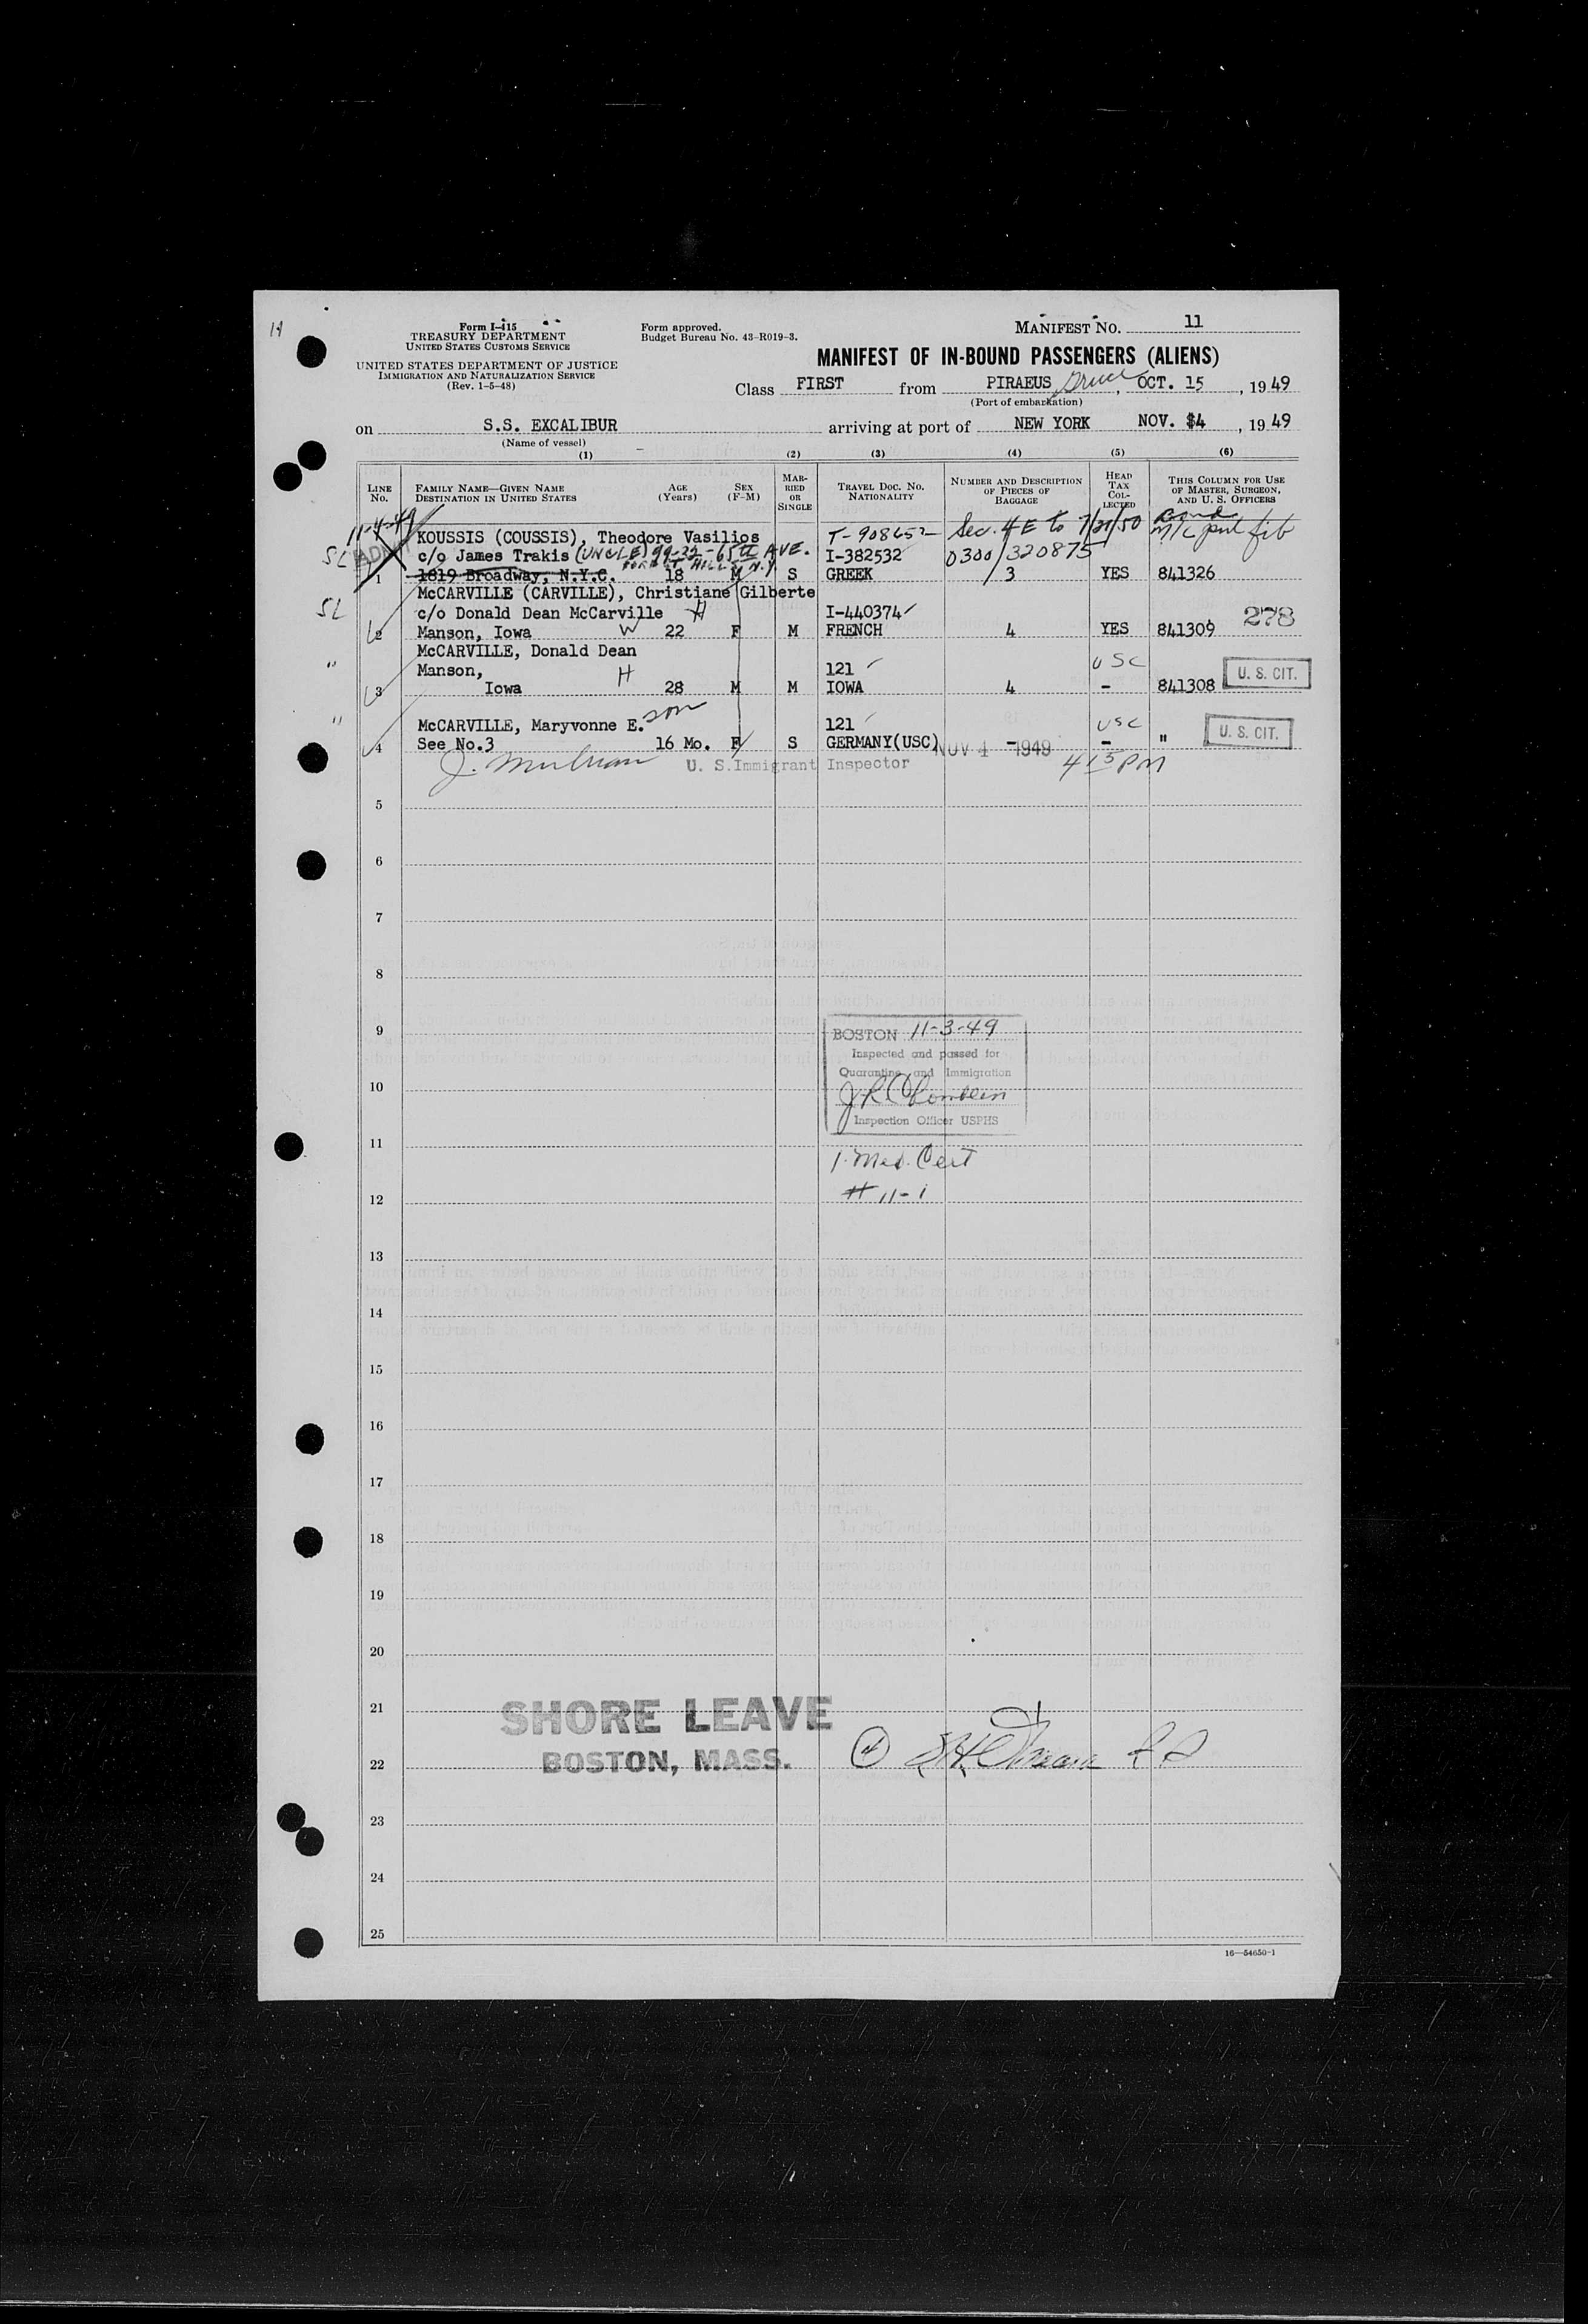 11
Form I-415
TREASURY DEPARTMENT
UNITED STATES CUSTOMS SERVICE
UNITED STATES DEPARTMENT OF JUSTICE
IMMIGRATION AND NATURALIZATION SERVICE
(Rev. 1-5-48)
Form approved.
Budget Bureau No. 43-R019-3.
MANIFEST NO. 11
MANIFEST OF IN-BOUND PASSENGERS (ALIENS)
Class FIRST from PIRAEUS Greece, OCT. 15, 1949
(Port of embarkation)
on S.S. EXCALIBUR arriving at port of NEW YORK NOV. $4, 1949
(Name of vessel)
(1) (2) (3) (4) (5) (6)
LINE NO. FAMILY NAME—GIVEN NAME DESTINATION IN UNITED STATES AGE (Years) SEX (F-M) MARRIED OR SINGLE TRAVEL DOC. NO. NATIONALITY NUMBER AND DESCRIPTION OF PIECES OF BAGGAGE HEAD TAX COLLECTED THIS COLUMN FOR USE OF MASTER, SURGEON, AND U. S. OFFICERS
11-4-49
KOUSSIS (COUSSIS), Theodore Vasilios T-908652 Sec. 4E to 7/21/50 Bond M/C
SL ADMIT c/o James Trakis (UNCLE) 99-32-65TH AVE. I-382532 0300/320875
FOREST HILLS N.Y.
1 1819 Broadway, N.Y.C. 18 M S GREEK 3 YES 841326
McCARVILLE (CARVILLE), Christiane Gilberte
SL c/o Donald Dean McCarville H I-440374 278
2 Manson, Iowa W 22 F M FRENCH 4 YES 841309
McCARVILLE, Donald Dean
" Manson, H 121 USC U. S. CIT.
3 Iowa 28 M M IOWA 4 - 841308
" McCARVILLE, Maryvonne E. son 121 USC U. S. CIT.
4 See No.3 16 Mo. F S GERMANY(USC) - - "
NOV 4 - 1949
U. S. Immigrant Inspector 415 PM
5
6
7
8
9
BOSTON 11-3-49
Inspected and passed for
Quarantine and Immigration
10
Inspection Officer USPHS
11
1 Med. Cert
# 11-1
12
13
14
15
16
17
18
19
20
21
SHORE LEAVE
22
BOSTON, MASS. 4
23
24
25
16—54650-1